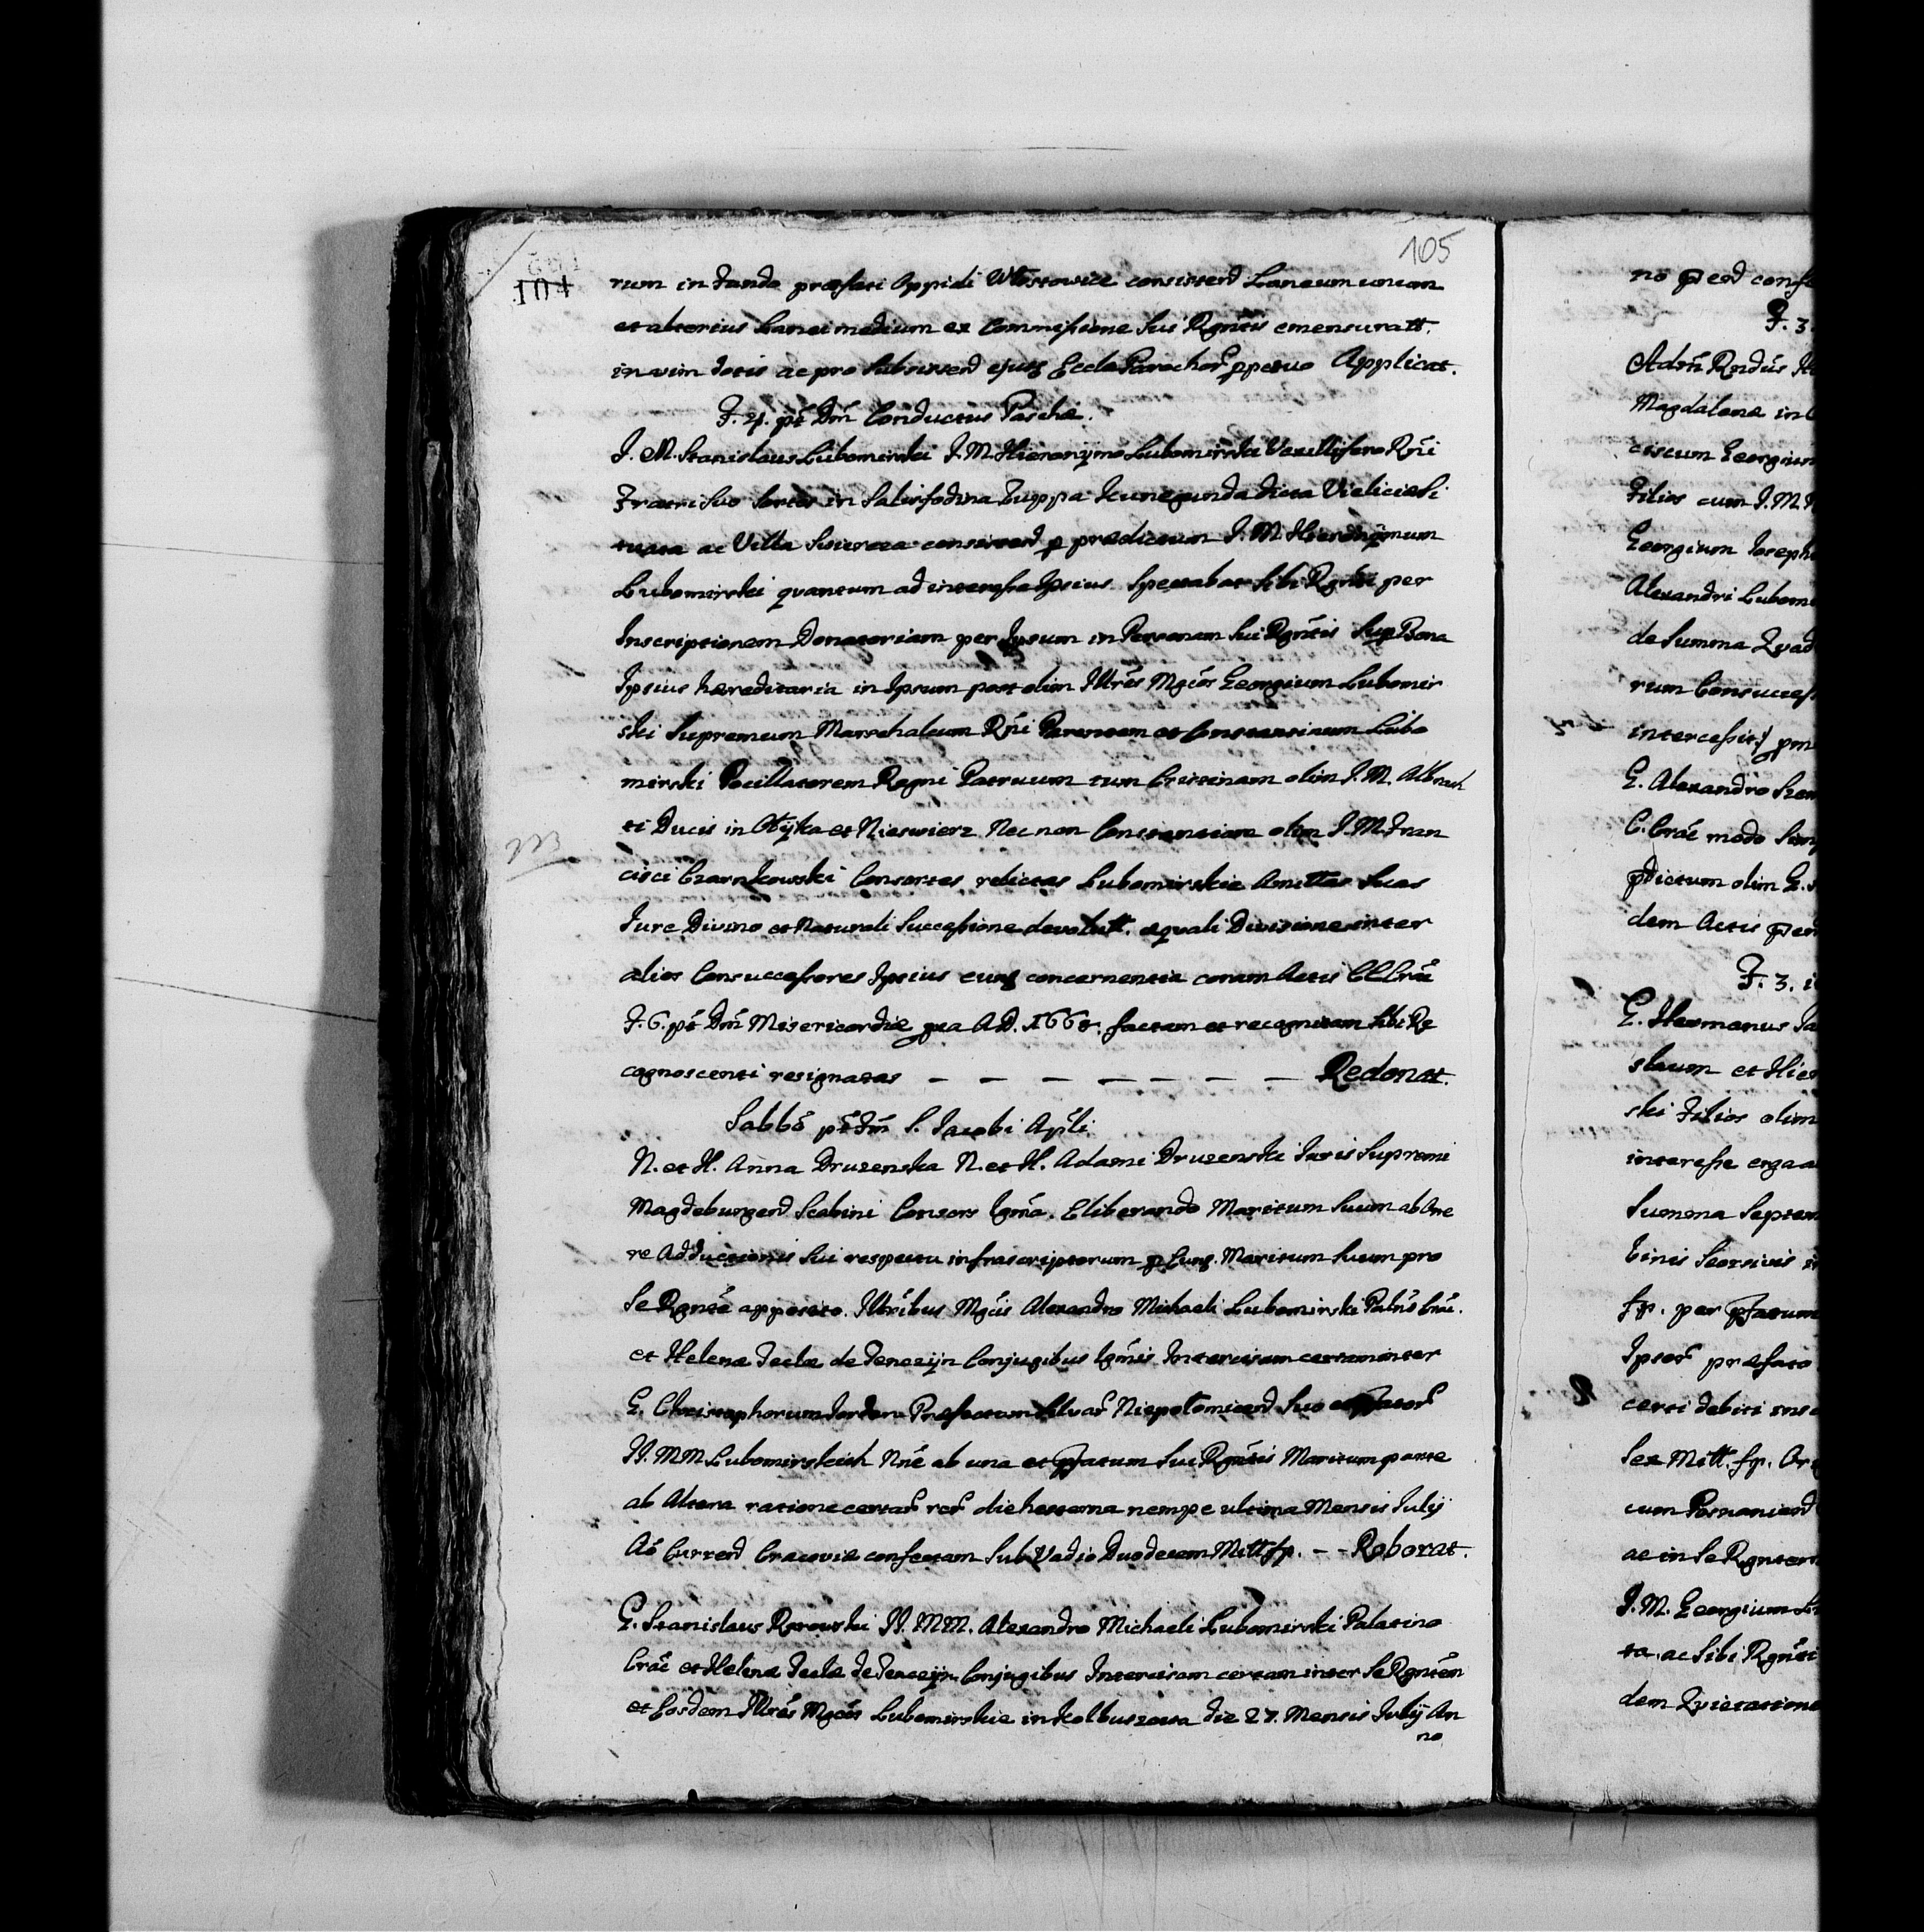 105
104
rum in fundo præfati Oppidi Wlostowice consistend Laneum unum
et alterius Lanei medium ex Commissione Sui Rgntis emensuratt.
in vim dotis ac pro subsistend ejusq Eccla Parochor ppetuo Applicat.
F. 4. pt Dm Conductus Paschæ.
J. M. Stanislaus Lubomirski J. M. Hieronymo Lubomirski Vexillifero Rni
Fratri Suo Sortes in Salisfodina Zuppa Kunegunda dicta Vieliciæ Si
tuata ac Villa Siercza consistend p prædictum J. M. Hieronymum
Lubomirski quantum ad interesse Ipsius spectabat Sibi Rgnti per
Inscriptionem Donatoriam per Ipsum in Personam Sui Rgntis Sup Bona
Ipsius hæreditaria in Ipsum post olim Illres Mgcos Georgium Lubomir
ski Supremum Marschalcum Rni Parentem et Constantinum Lubo
mirski Pocillatorem Regni Patruum tum Cristinam olim J. M. Albrach
ti Ducis in Olyka et Nieswierz Nec non Constantiam olim J. M. Fran
cisci Czarnkowski Consortes relictas Lubomirskie Amittas Suas
Jure Divino et Naturali Successione devolutt. æquali Divisione inter
alios Consuccessores Ipsius eumq concernentia coram Actis CC Crac
F. 6. pt Dm Misericordiæ pxa A D. 1668. factam et recognitam Sibi Re
cognoscenti resignatas – – – – – – – Redonat.
Sabbo pt fm S. Jacobi Apli.
N. et H. Anna Druzenska N. et H. Adami Druzenski Juris Supremi
Magdeburgend Scabini Consors lgma. Eliberando Maritum Suum ab One
re Adductionis Sui respectu infrascriptorum p Eunq. Maritum Suum pro
Se Rgnte apposito. Illribus Mgcis Alexandro Michaeli Lubomirski Palno Crac.
et Helenæ Teclæ de Tenczyn Conjugibus lgmis Intercisam certam inter
G. Christophorum Jordan Præfectum Silvar Niepolomicend Suo et pfator
JJ. MM Lubomirskich Nne ab una et pfatum Sui Rgntis Maritum parte
ab Altera ratione certar rer die hesterna nempe ultima Mensis Julij
Ao Currend Cracoviæ confectam Sub Vadio Duodecem Mill fp. – – Roborat.
G. Stanislaus Rzrowski JJ. MM. Alexandro Michaeli Lubomirski Palatino
Crac et Helenæ Teclæ de Tenczyn Conjugibus Intercisam certam inter Se Rgntem
et Eosdem Illres Mgcos Lubomirskie in Kolbuszowa die 27. Mensis Julij An
no
no p end conf
F. 3.
Admm Rndus
Magdalena in
ciscum Georgium
Filios cum J. M.
Georgium Joseph
Alexandri Lubom
de Summa Quad
rum Consucces
intercessit pm
G. Alexandro
C. Crac modo
pdictum olim G.
dem Actis pen
F. 3. i
G. Hermanus Ja
slaum et Hier
ski Filios olim
interesse erga a
Summa Septem
binis Seorsivis
fp. per pfatum
Ipsor præfato
certi debiti ins
Sex Mill. fp.
cum Posnaniend
ac in Se Rgntem
J. M. Georgium
ta ac Sibi Rgnti
dem Quietatione